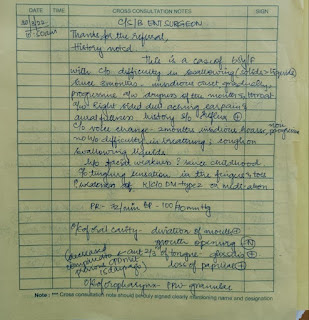 DATE
CROSS CONSULTATION NOTES
SIGN
C/S/B ENT SURGEON
Thanks for the referral,
History noted
This is a case of
with c/o difficulty in swallowing (solids > liquids)
since 2months insidious onset, gradually
progressive c/o dryness of the mouth & throat
c/o Right sided dull aching earpain
giddiness history of reflux +
c/o voice change - 2months insidious hoarse, non progressive
no h/o difficulty in breathing; cough on
swallowing liquids
h/o facial weakness since childhood
tingling sensation in the fingers & toes
K/C/O DM-type2 on medication
PR- 72/min BP- 100/70 mmHg
O/E of oral cavity- deviation of mouth +
mouth opening (N)
ant 2/3 of tongue - fissures +
loss of papillae +
O/E oropharynx - PPW - granular
Note : *** Cross consultation note should be duly signed clearly mentioning name and designation